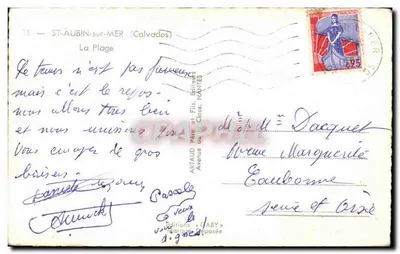 11 - ST-AUBIN-sur-MER (Calvados)
La Plage
Le temps n'est pas fameux
mais c'est le repos
nous allons tous bien
et nous unissons pour
vous envoyer de gros
baisers
Pascale
ARTAUD Père et Fils, Éditeurs
Avenue de la Close, NANTES
Éditions « GABY »
Marque Déposée
0,25
MER
M et Mme Dacquet
Avenue Marguerite
Eaubonne
Seine et Oise